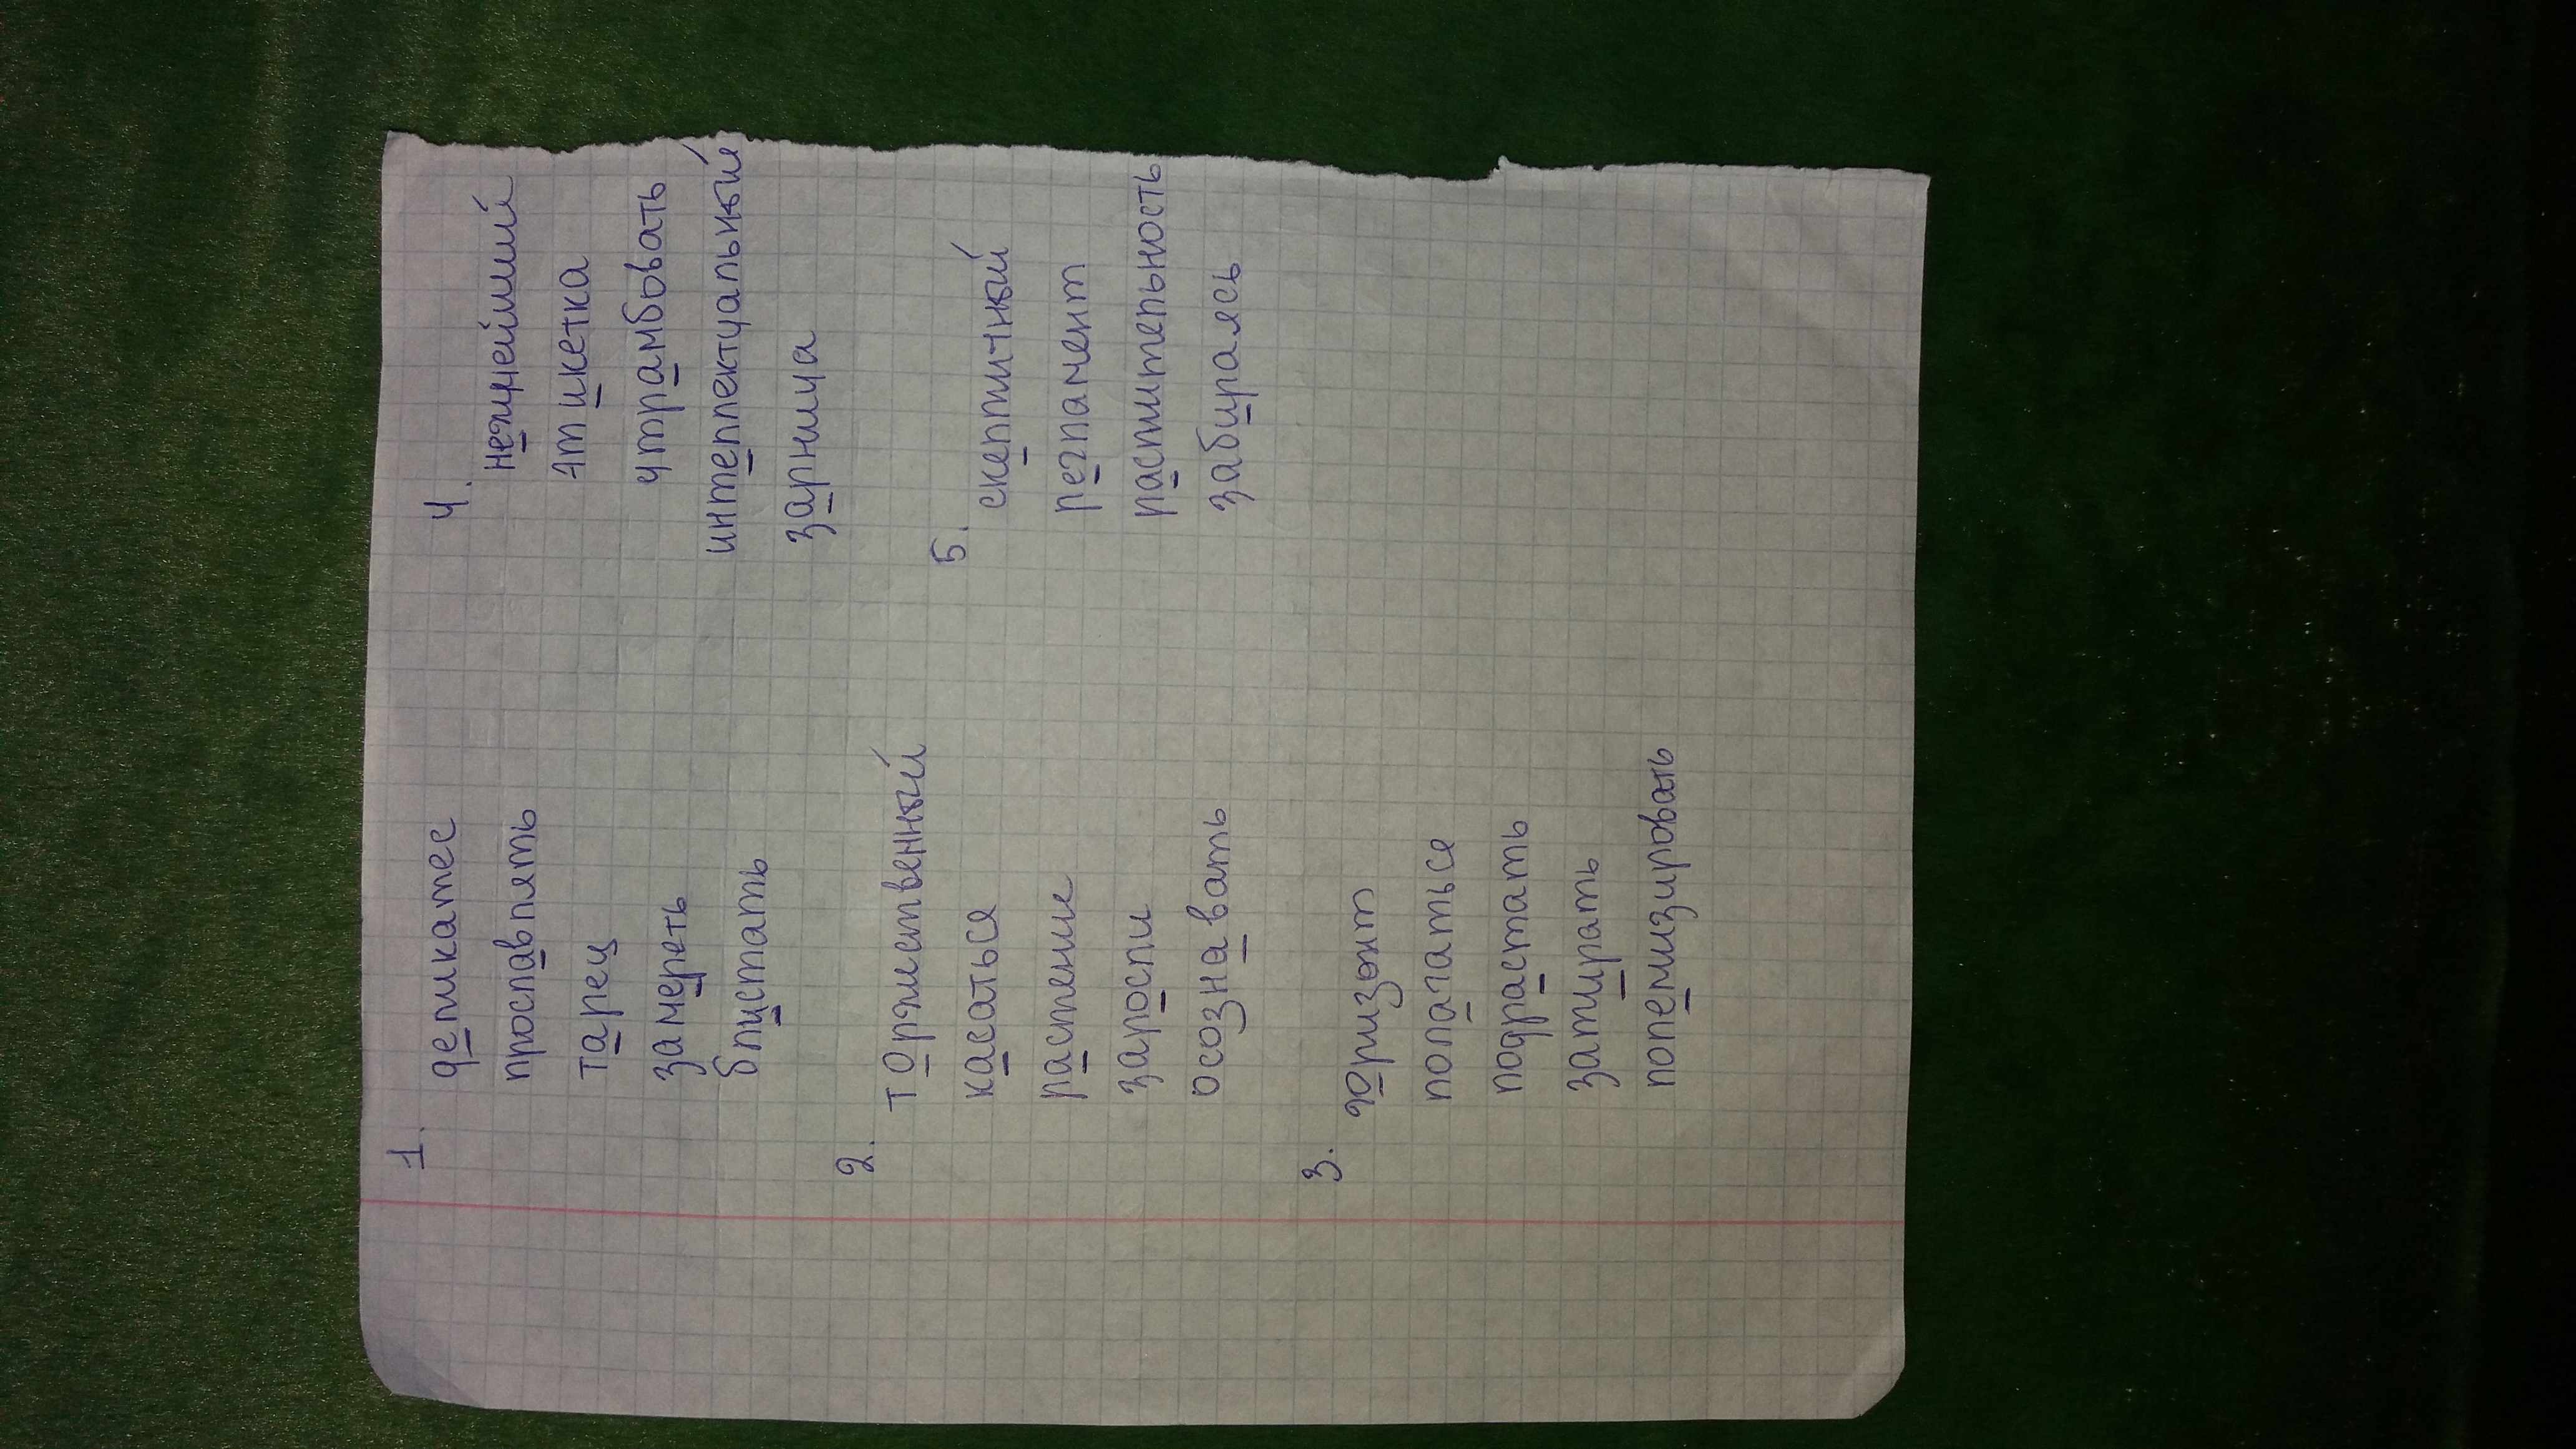 1.
деликатес
прославлять
ларец
замереть
блистать
2.
торжественный
касаться
растение
заросли
осознавать
3.
горизонт
полагаться
подрастать
затирать
полемизировать
4.
нежнейший
этикетка
утрамбовать
интеллектуальный
зарница
5.
скептичный
регламент
растительность
забираясь